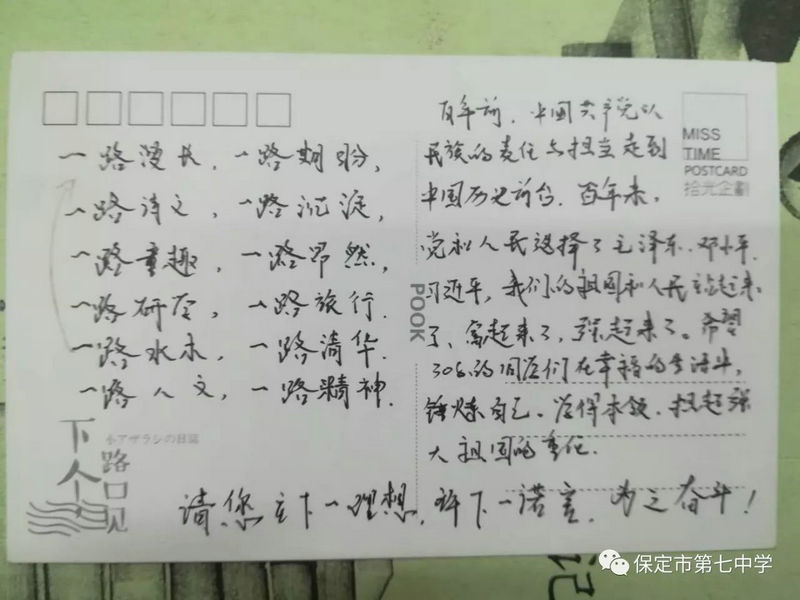 一路漫长，一路期盼，
一路诗文，一路沉淀，
一路童趣，一路昂然，
一路研学，一路旅行.
一路水木，一路清华.
一路人文，一路精神.
百年前，中国共产党以
民族的责任与担当走到
中国历史前台.百年来，
党和人民选择了毛泽东、邓小平、
习近平，我们的祖国和人民站起来
了、富起来了，强起来了。希望
308的同学们在幸福的生活中，
锤炼自己、学得本领、担起强
大祖国的重任.
请您立下一理想，许下一诺言，为之奋斗！
MISS
TIME
POSTCARD
拾光企劃
POOK
小アザラシの日誌
下个路口见
保定市第七中学